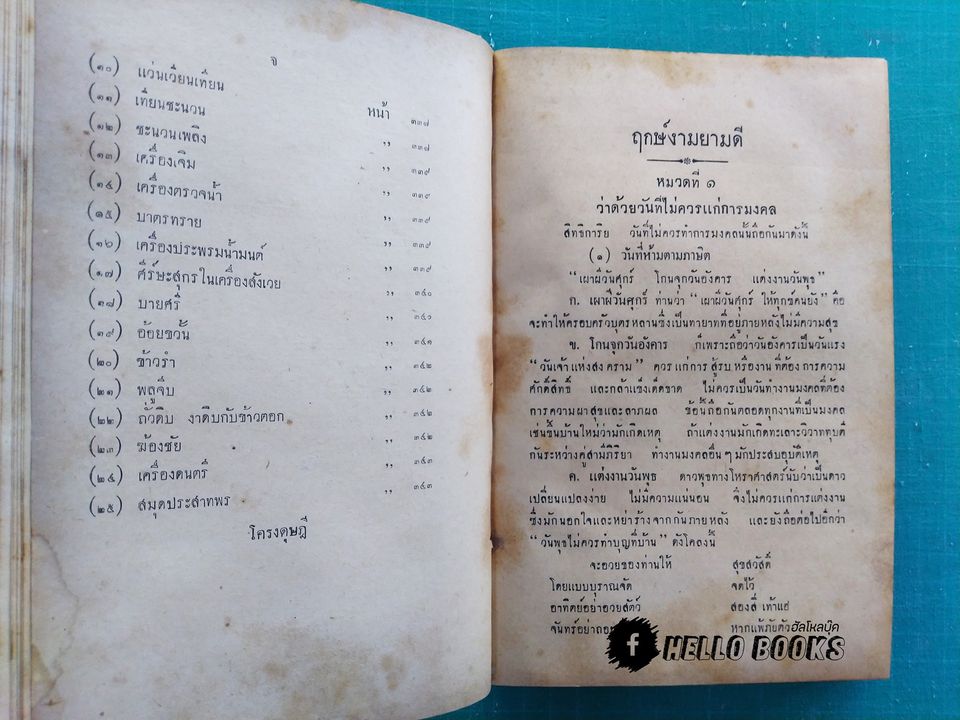 จ
(๑๐) แว่นเวียนเทียน
หน้า ๓๓๗
(๑๑) เทียนชะนวน
,, ๓๓๗
(๑๒) ชะนวนเพลิง
,, ๓๓๙
(๑๓) เครื่องเจิม
,, ๓๓๙
(๑๔) เครื่องตรวจน้ำ
,, ๓๓๙
(๑๕) บาตรทราย
,, ๓๓๙
(๑๖) เครื่องประพรมน้ำมนต์
,, ๓๓๙
(๑๗) ศีร์ษะสุกรในเครื่องสังเวย
,, ๓๔๐
(๑๘) บายศรี
,, ๓๔๑
(๑๙) อ้อยขวั้น
,, ๓๔๑
(๒๐) ข้าวรำ
,, ๓๔๒
(๒๑) พลูจีบ
,, ๓๔๒
(๒๒) ถั่วดิบ งาดิบกับข้าวตอก
,, ๓๔๒
(๒๓) ฆ้องชัย
,, ๓๔๒
(๒๔) เครื่องดนตรี
,, ๓๔๓
(๒๕) สมุดประสาทพร
,, ๓๔๓
โครงดุษฎี
ฤกษ์งามยามดี
หมวดที่ ๑
ว่าด้วยวันที่ไม่ควรแก่การมงคล
สิทธิการิย วันที่ไม่ควรทำการมงคลนั้นถือกันมาดังนี้
(๑) วันที่ห้ามตามภาษิต
“เผาผีวันศุกร์ โกนจุกวันอังคาร แต่งงานวันพุธ”
ก. เผาผีวันศุกร์ ท่านว่า “เผาผีวันศุกร์ ให้ทุกข์คนยัง” คือ
จะทำให้ครอบครัวบุตรหลานซึ่งเป็นทายาทที่อยู่ภายหลังไม่มีความสุข
ข. โกนจุกวันอังคาร ก็เพราะถือว่าวันอังคารเป็นวันแรง
“วันเจ้าแห่งสงคราม” ควรแก่การสู้รบ หรืองานที่ต้องการความ
ศักดิ์สิทธิ์ และกล้าแข็งเด็ดขาด ไม่ควรเป็นวันทำงานมงคลที่ต้อง
การความผาสุขและลาภผล ข้อนี้ถือกันตลอดทุกงานที่เป็นมงคล
เช่นขึ้นบ้านใหม่ว่ามักเกิดเหตุ ถ้าแต่งงานมักเกิดทะเลาะวิวาททุบตี
กันระหว่างคู่สามีภิริยา ทำงานมงคลอื่น ๆ มักประสบอุบัติเหตุ
ค. แต่งงานวันพุธ ดาวพุธทางโหราศาสตร์นับว่าเป็นดาว
เปลี่ยนแปลงง่าย ไม่มีความแน่นอน จึงไม่ควรแก่การแต่งงาน
ซึ่งมักนอกใจและหย่าร้างจากกันภายหลัง และยังถือต่อไปอีกว่า
“วันพุธไม่ควรทำบุญที่บ้าน” ดังโคลงนี้
จะอวยของท่านให้ สุขสวัสดิ์
โดยแบบบุราณจัด จดไว้
อาทิตย์อย่าอวยสัตว์ สองสี่ เท้าแฮ
จันทร์อย่าถอ หากแพ้ภัยตัว
ฮัลโหลบุ๊ค
f HELLO BOOKS